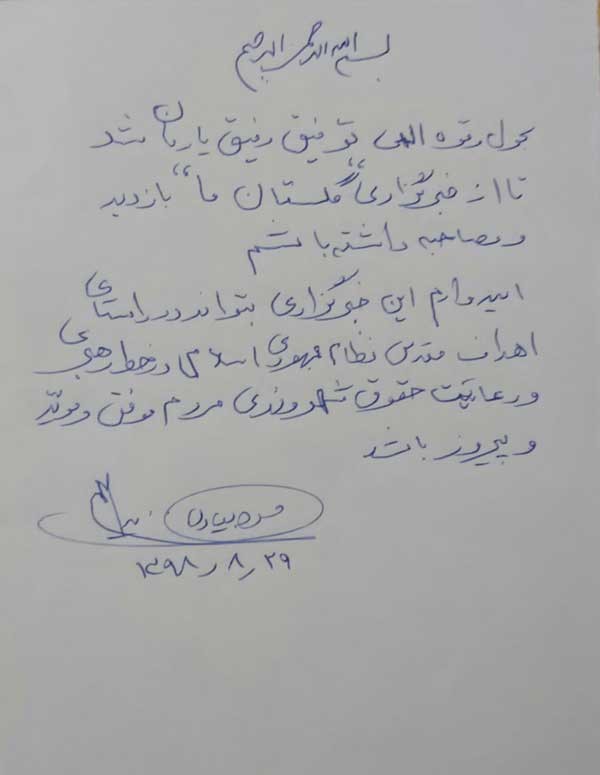 بسم الله الرحمن الرحیم
بحول و قوه الهی توفیق رفیق یارمان شد
تا از خبرگزاری "گلستان ما" بازدید
و مصاحبه داشته باشم
امیدوارم این خبرگزاری بتواند در راستای
اهداف مقدس نظام جمهوری اسلامی و خط رهبری
و رعایت حقوق شهروندی مردم موفق و موید
و پیروز باشد
۱۳۹۸/۸/۲۹